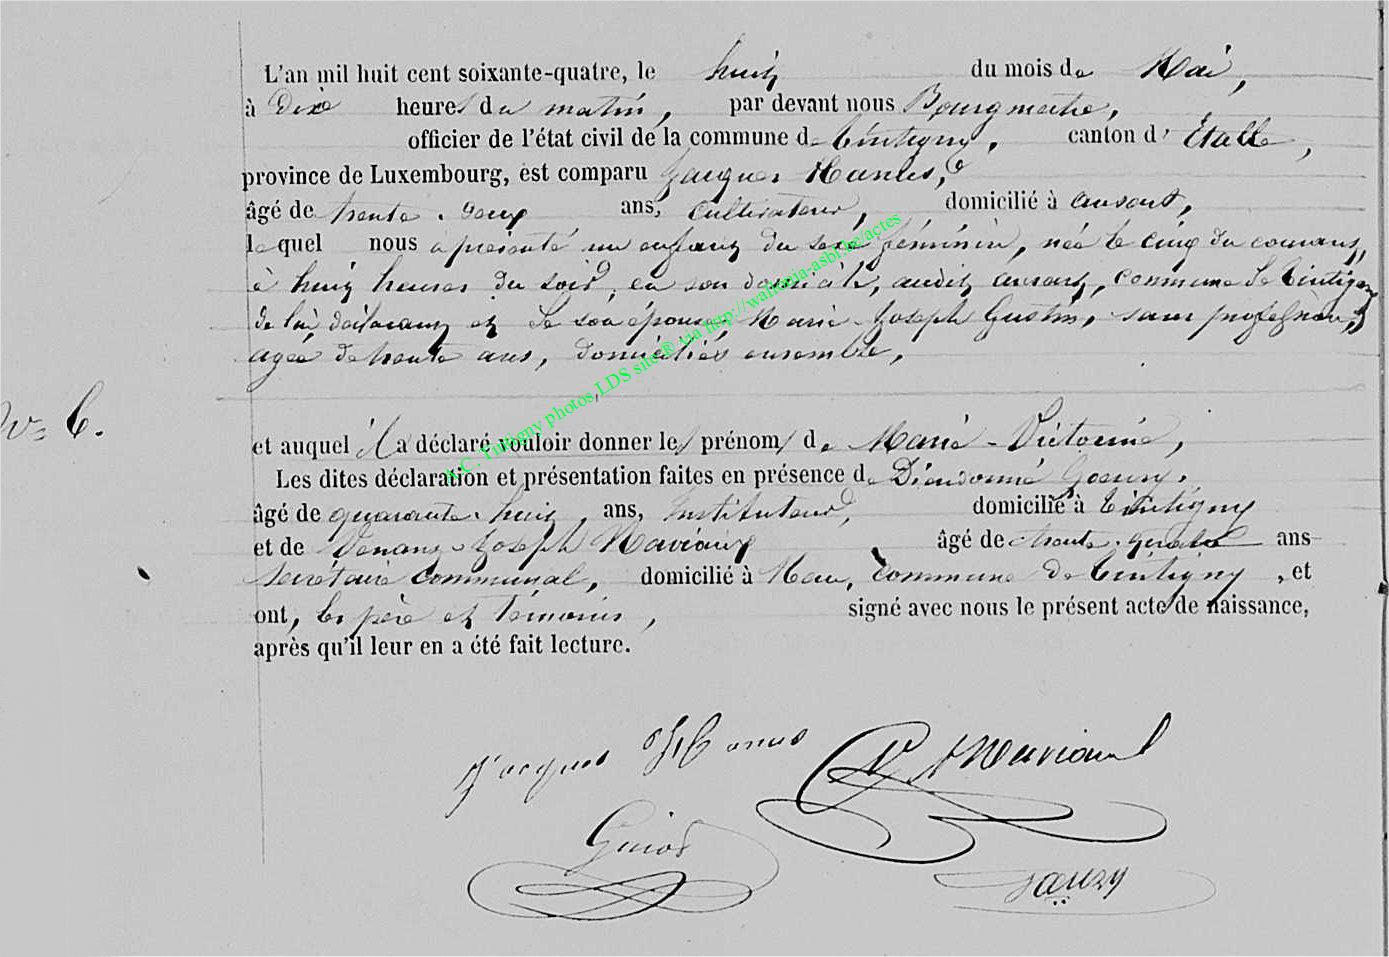 L'an mil huit cent soixante-quatre, le huit du mois de Mai,
à Dix heures du matin, par devant nous Bourgmestre,
officier de l'état civil de la commune de Tintigny, canton d' Etalle,
province de Luxembourg, est comparu Jacques Hanus,
âgé de trente-deux ans, cultivateur, domicilié à ansart,
lequel nous a présenté un enfant du sexe féminin, née le cinq du courant,
à huit heures du soir, en son domicile, audit ansart, commune de Tintigny
de lui, déclarant et de son épouse, Marie-Joseph Gustin, sans profession,
agée de trente ans, domiciliés ensemble,
No 6.
et auquel il a déclaré vouloir donner les prénoms de Marie-Victorine,
Les dites déclaration et présentation faites en présence de Dieudonné
âgé de quarante-huit, ans, Instituteur, domicilié à Tintigny
et de Venant-Joseph Maviaux âgé de trente-quatre ans
secrétaire communal, domicilié à Han, commune de Tintigny, et
ont, les père et témoins, signé avec nous le présent acte de naissance,
après qu'il leur en a été fait lecture.
Jacques Hanus
A.C. Tintigny photos LDS site ® via http://wallonia-asbl.be/actes